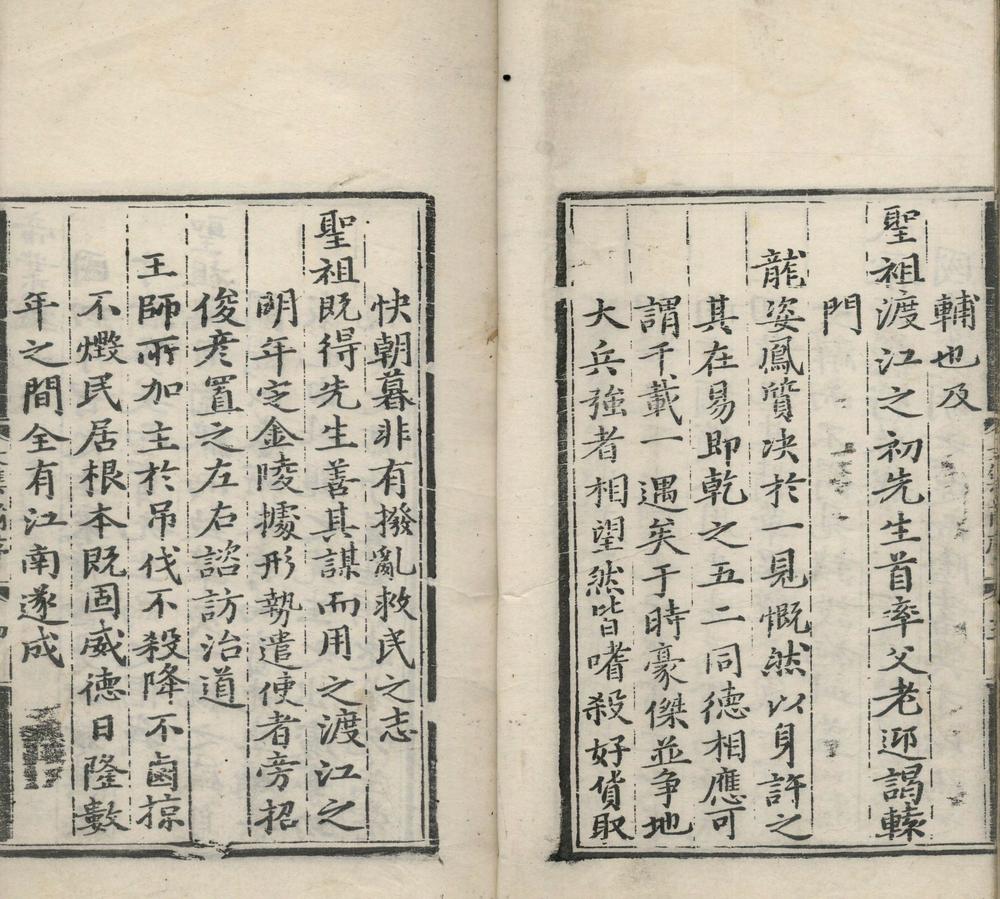 輔也及
聖祖渡江之初先生首率父老迎謁轅
門
龍姿鳳質決於一見慨然以身許之
其在易即乾之五二同德相應可
謂千載一遇矣于時豪傑並爭地
大兵強者相望然皆嗜殺好貨取
快朝暮非有撥亂救民之志
聖祖既得先生善其謀而用之渡江之
明年定金陵據形勢遣使者旁招
俊彥置之左右諮訪治道
王師所加主於吊伐不殺降不鹵掠
不燬民居根本既固威德日隆數
年之間全有江南遂成